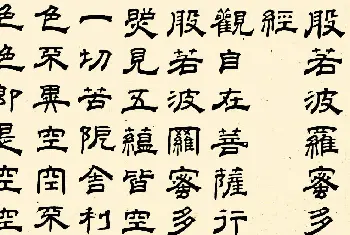 般若波羅蜜多
經
觀自在菩薩行
般若波羅蜜多
照見五蘊皆空
一切苦阨舍利
色不異空空不
色色即是空空